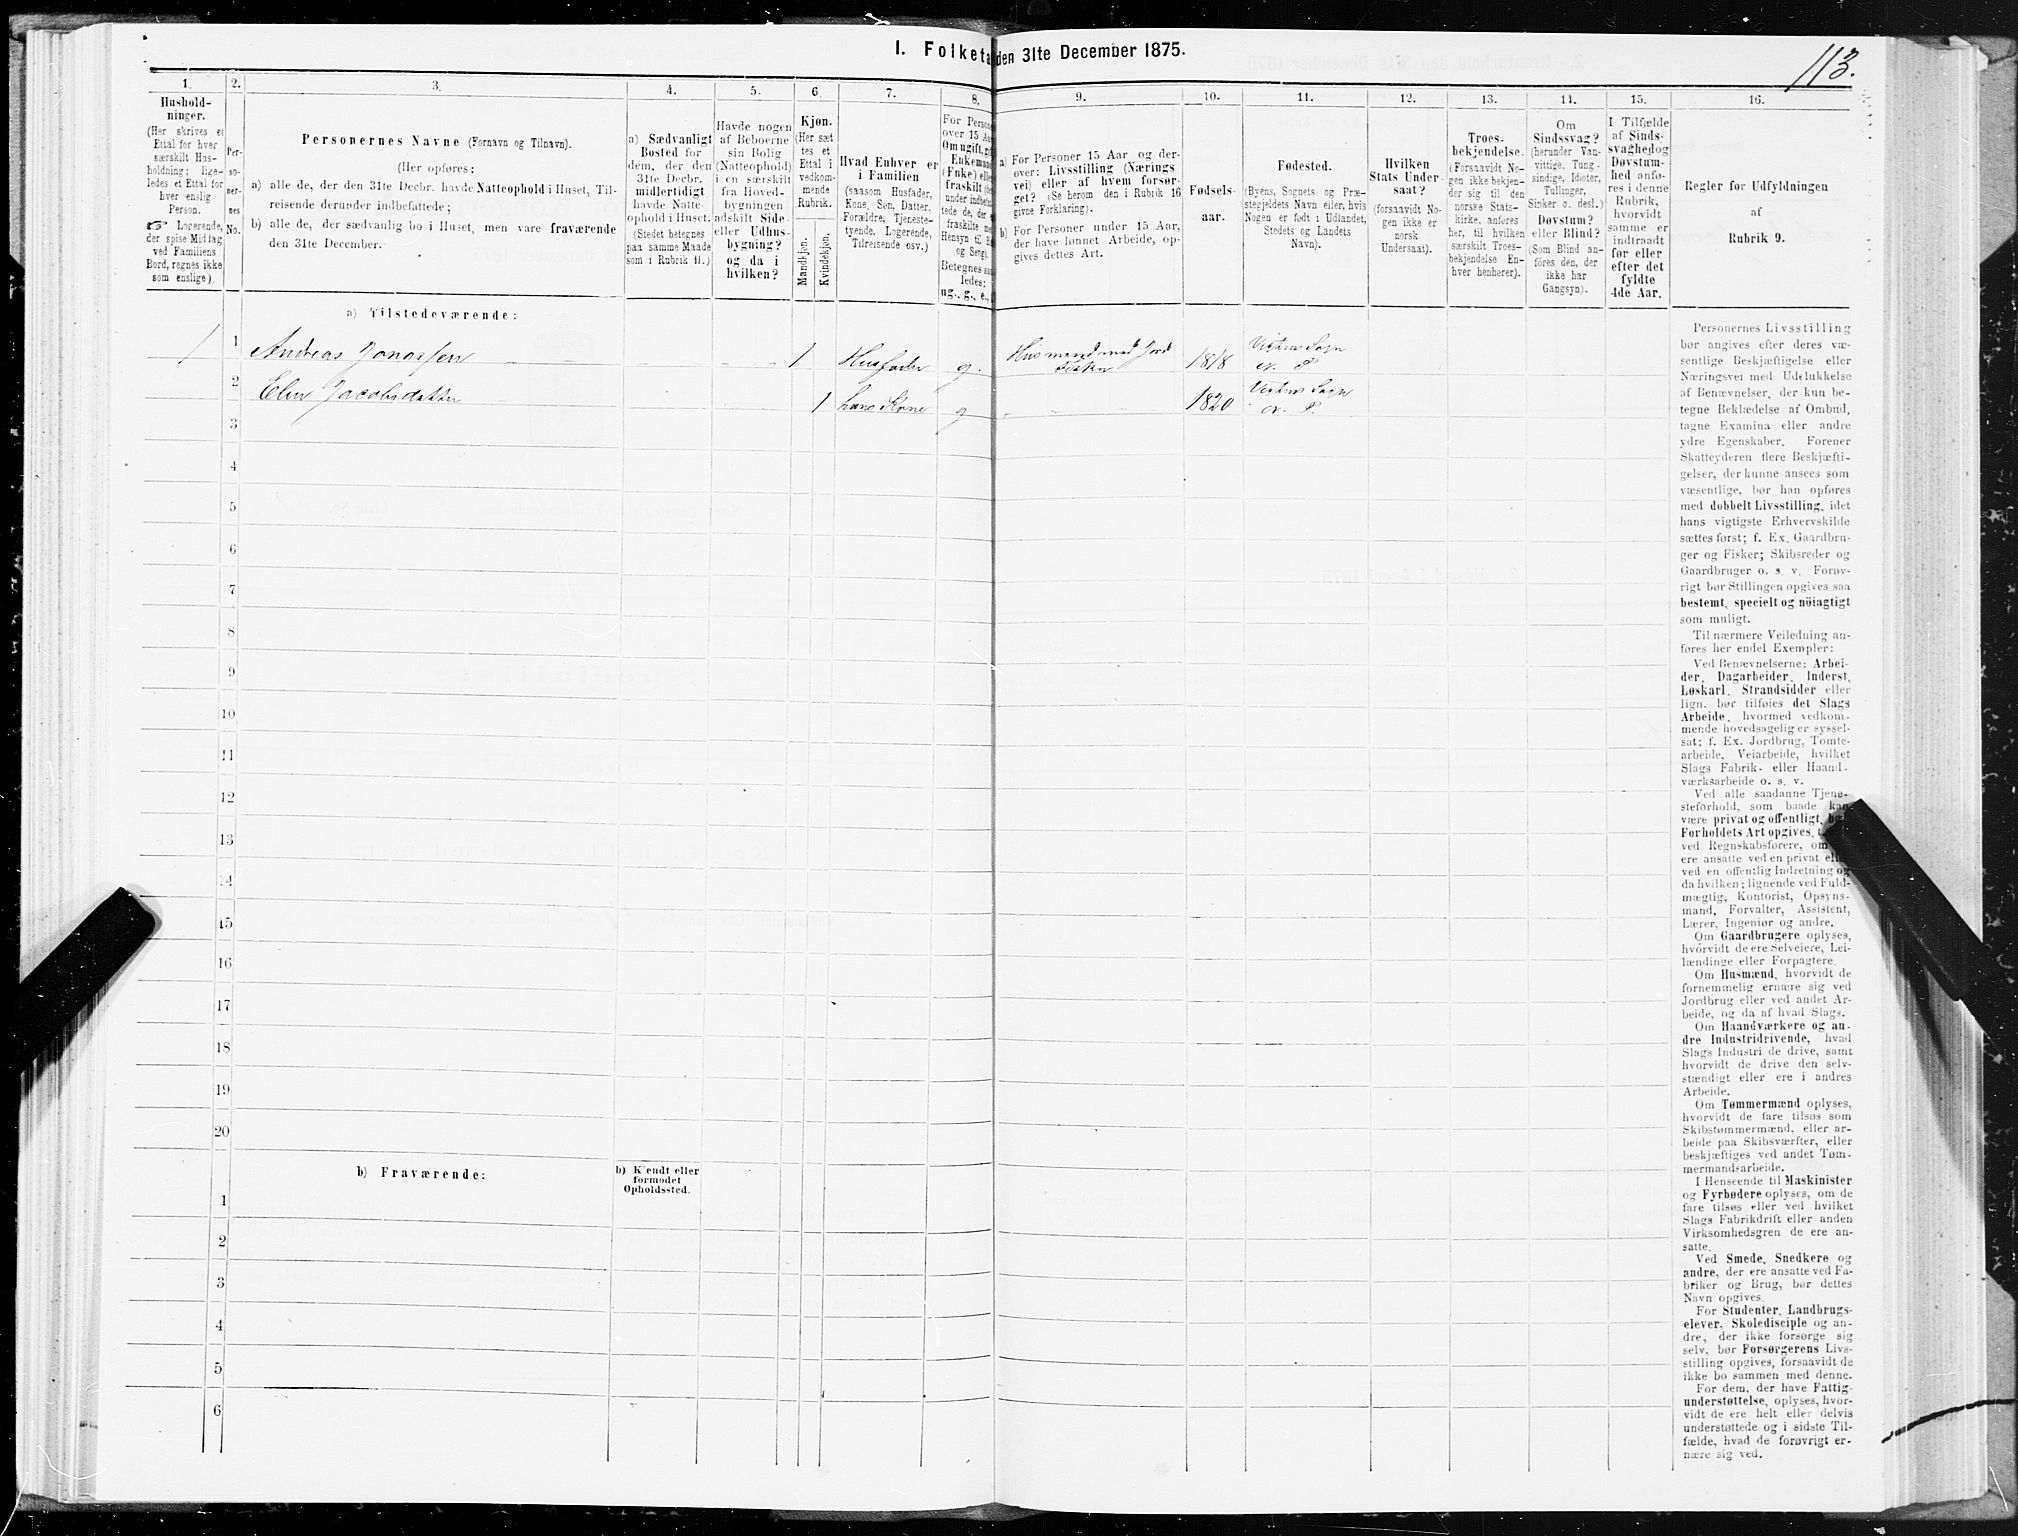 I. Folketa den 31te December 1875.
113.
1.
2.
3.
4.
5.
6.
7.
8.
9.
10.
11.
12.
13.
14.
15.
16.
Hushold-
ninger.
(Her skrives et
Ettal for hver
særskilt Hus-
holdning; lige-
ledes et Ettal for
hver enslig
Person.
☞ Logerende,
der spise Middag
ved Familiens
Bord, regnes ikke
som enslige).
Per-
so-
ner-
nes
No.
Personernes Navne (Fornavn og Tilnavn).
(Her opføres:
a) alle de, der den 31te Decbr. havde Natteophold i Huset, Til-
reisende derunder indbefattede;
b) alle de, der sædvanlig bo i Huset, men vare fraværende
den 31te December.
a) Sædvanligt
Bosted for
dem, der den
31te Decbr.
midlertidigt
havde Natte-
ophold i Huset.
(Stedet betegnes
paa samme Maade
som i Rubrik 11.)
Havde nogen
af Beboerne
sin Bolig
(Natteophold)
i en særskilt
fra Hoved-
bygningen
adskilt Side-
eller Udhus-
bygning?
og da i
hvilken?
Kjøn.
(Her sæt
tes et
Ettal i
vedkom-
mende
Rubrik.
Mandkjøn.
Kvindekjøn.
Hvad Enhver er
i Familien
(saasom Husfader,
Kone, Søn, Datter,
Forældre, Tjeneste-
tyende, Logerende,
Tilreisende osv.)
For Persone
over 15 Aa
Om ugift, gift
Enkemand
(Enke) elle
fraskilt (de
under indbefat
tede de, der e
fraskilte me
Hensyn til Bo
og Seng).
Betegnes saa
ledes:
ug., g., e.,
a) For Personer 15 Aar og der-
over: Livsstilling (Nærings
vei) eller af hvem forsør-
get? (Se herom den i Rubrik 16
givne Forklaring).
b) For Personer under 15 Aar,
der have lønnet Arbeide, op-
gives dettes Art.
Fødsels-
aar.
Fødested.
(Byens, Sognets og Præ-
stegjeldets Navn eller, hvis
Nogen er født i Udlandet,
Stedets og Landets
Navn).
Hvilken
Stats Under-
saat?
(forsaavidt No-
gen ikke er
norsk
Undersaat).
Troes-
bekjendelse.
(Forsaavidt No-
gen ikke bekjen-
der sig til den
norske Stats-
kirke, anføres
her, til hvilken
særskilt Troes-
bekjendelse En-
hver henhører).
Om
Sindssvag?
(herunder Van-
vittige, Tung-
sindige, Idioter,
Tullinger,
Sinker o. desl.)
Døvstum?
eller Blind?
(Som Blind an-
føres den, der
ikke har
Gangsyn).
I Tilfælde
af Sinds-
svaghed og
Døvstum-
hed anfø-
res i denne
Rubrik,
hvorvidt
samme er
indtraadt
før eller
efter det
fyldte
4de Aar.
Regler for Udfyldningen
af
Rubrik 9.
a) Tilstedeværende:
1 1 Andreas Jonassen 1 Husfader g. Husmand med Jord 1818
2 Elen Jacobsdatter 1 hans Kone g 1820
3
4
5
6
7
8
9
10
11
12
13
14
15
16
17
18
19
20
b) Fraværende:
b) Kjendt eller
formodet
Opholdssted.
1
2
3
4
5
6
Personernes Livsstilling
bør angives efter deres væ-
sentlige Beskjæftigelse eller
Næringsvei med Udelukkelse
af Benævnelser, der kun be-
tegne Beklædelse af Ombud,
tagne Examina eller andre
ydre Egenskaber. Forener
Skatteyderen flere Beskjæfti-
gelser, der kunne ansees som
væsentlige, bør han opføres
med dobbelt Livsstilling, idet
hans vigtigste Erhvervskilde
sættes først; f. Ex. Gaardbru-
ger og Fisker; Skibsreder og
Gaardbruger o. s. v. Forøv-
rigt bør Stillingen opgives saa
bestemt, specielt og nöiagtigt
som muligt.
Til nærmere Veiledning an-
føres her endel Exempler:
Ved Benævnelserne: Arbei-
der, Dagarbeider, Inderst,
Løskarl, Strandsidder eller
lign. bør tilføies det Slags
Arbeide, hvormed vedkom-
mende hovedsagelig er syssel-
sat; f. Ex. Jordbrug, Tomte-
arbeide, Veiarbeide, hvilket
Slags Fabrik- eller Haand-
værksarbeide o. s. v.
Ved alle saadanne Tjene-
steforhold, som baade kan
være privat og offentligt, bør
Forholdets Art opgives,
ved Regnskabsførere, om
ere ansatte ved en privat eller
ved en offentlig Indretning og
da hvilken; lignende ved Fuld-
mægtig, Kontorist, Opsyns-
mand, Forvalter, Assistent,
Lærer, Ingeniør og andre.
Om Gaardbrugere oplyses,
hvorvidt de ere Selveiere, Lei-
lændinge eller Forpagtere.
Om Husmænd, hvorvidt de
fornemmelig ernære sig ved
Jordbrug eller ved andet Ar-
beide, og da af hvad Slags.
Om Haandværkere og an-
dre Industridrivende, hvad
Slags Industri de drive, samt
hvorvidt de drive den selv-
stændigt eller ere i andres
Arbeide.
Om Tømmermænd oplyses,
hvorvidt de fare tilsøs som
Skibstømmermænd, eller ar-
beide paa Skibsværfter, eller
beskjæftiges ved andet Tøm-
mermandsarbeide.
I Henseende til Maskinister
og Fyrbødere oplyses, om de
fare tilsøs eller ved hvilket
Slags Fabrikdrift eller anden
Virksomhedsgren de ere an-
satte.
Ved Smede, Snedkere og
andre, der ere ansatte ved Fa-
briker og Brug, bør dettes
Navn opgives.
For Studenter, Landbrugs-
elever, Skoledisciple og an-
dre, der ikke forsørge sig
selv, bør Forsørgerens Livs-
stilling opgives, forsaavidt de
ikke bo sammen med denne.
For dem, der have Fattig-
understøttelse, oplyses, hvor-
vidt de ere helt eller delvis
understøttede og i sidste Til-
fælde, hvad de forøvrigt er-
nære sig ved.